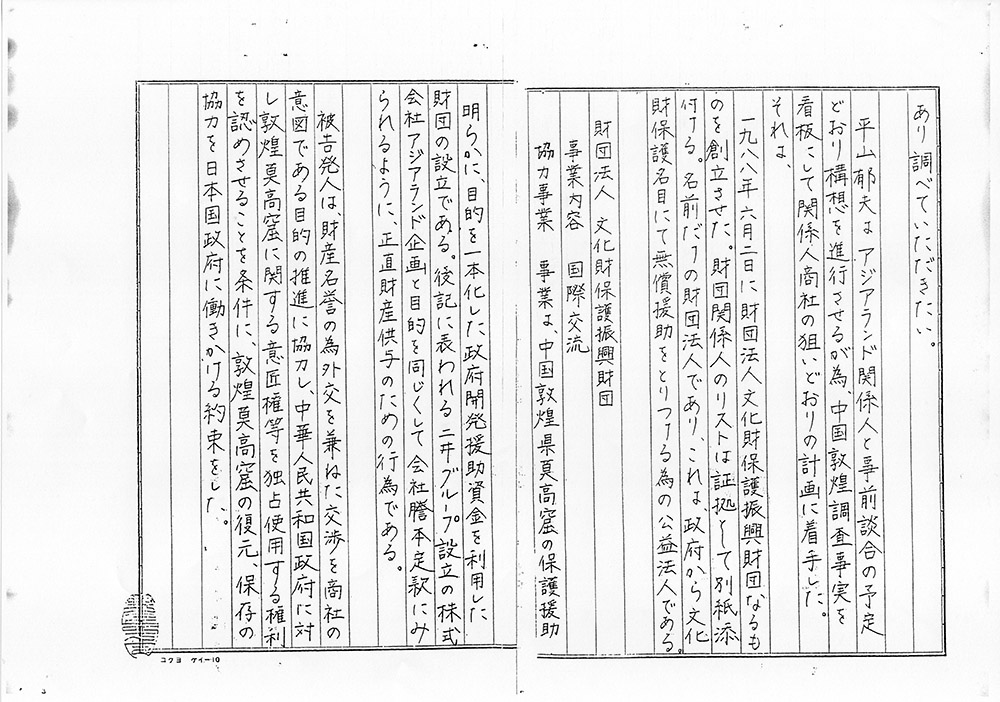 あり調べていただきたい。
平山郁夫はアジアランド関係人と事前談合の予定
どおり構想を進行させるが為、中国敦煌調査事実を
看板にして関係人商社の狙いどおりの計画に着手した。
それは、
一九八八年六月二日に財団法人文化財保護振興財団なるも
のを創立させた。財団関係人のリストは証拠として別紙添
付ける。名前だけの財団法人であり、これは、政府から文化
財保護名目にて無償援助をとりつける為の公益法人である。
財団法人 文化財保護振興財団
事業内容 国際交流
協力事業 事業は、中国敦煌県莫高窟の保護援助
明らかに、目的を一本化した政府開発援助資金を利用した
財団の設立である。後記に表われる二井グループ設立の株式
会社アジアランド企画と目的を同じくして会社謄本定款にみ
られるように、正直財産供与のための行為である。
被告発人は、財産名誉の為外交を兼ねた交渉を商社の
意図である目的の推進に協力し、中華人民共和国政府に対
し敦煌莫高窟に関する意匠権等を独占使用する権利
を認めさせることを条件に、敦煌莫高窟の復元、保存の
協力を日本国政府に働きかける約束をした。
コクヨ ケイー10